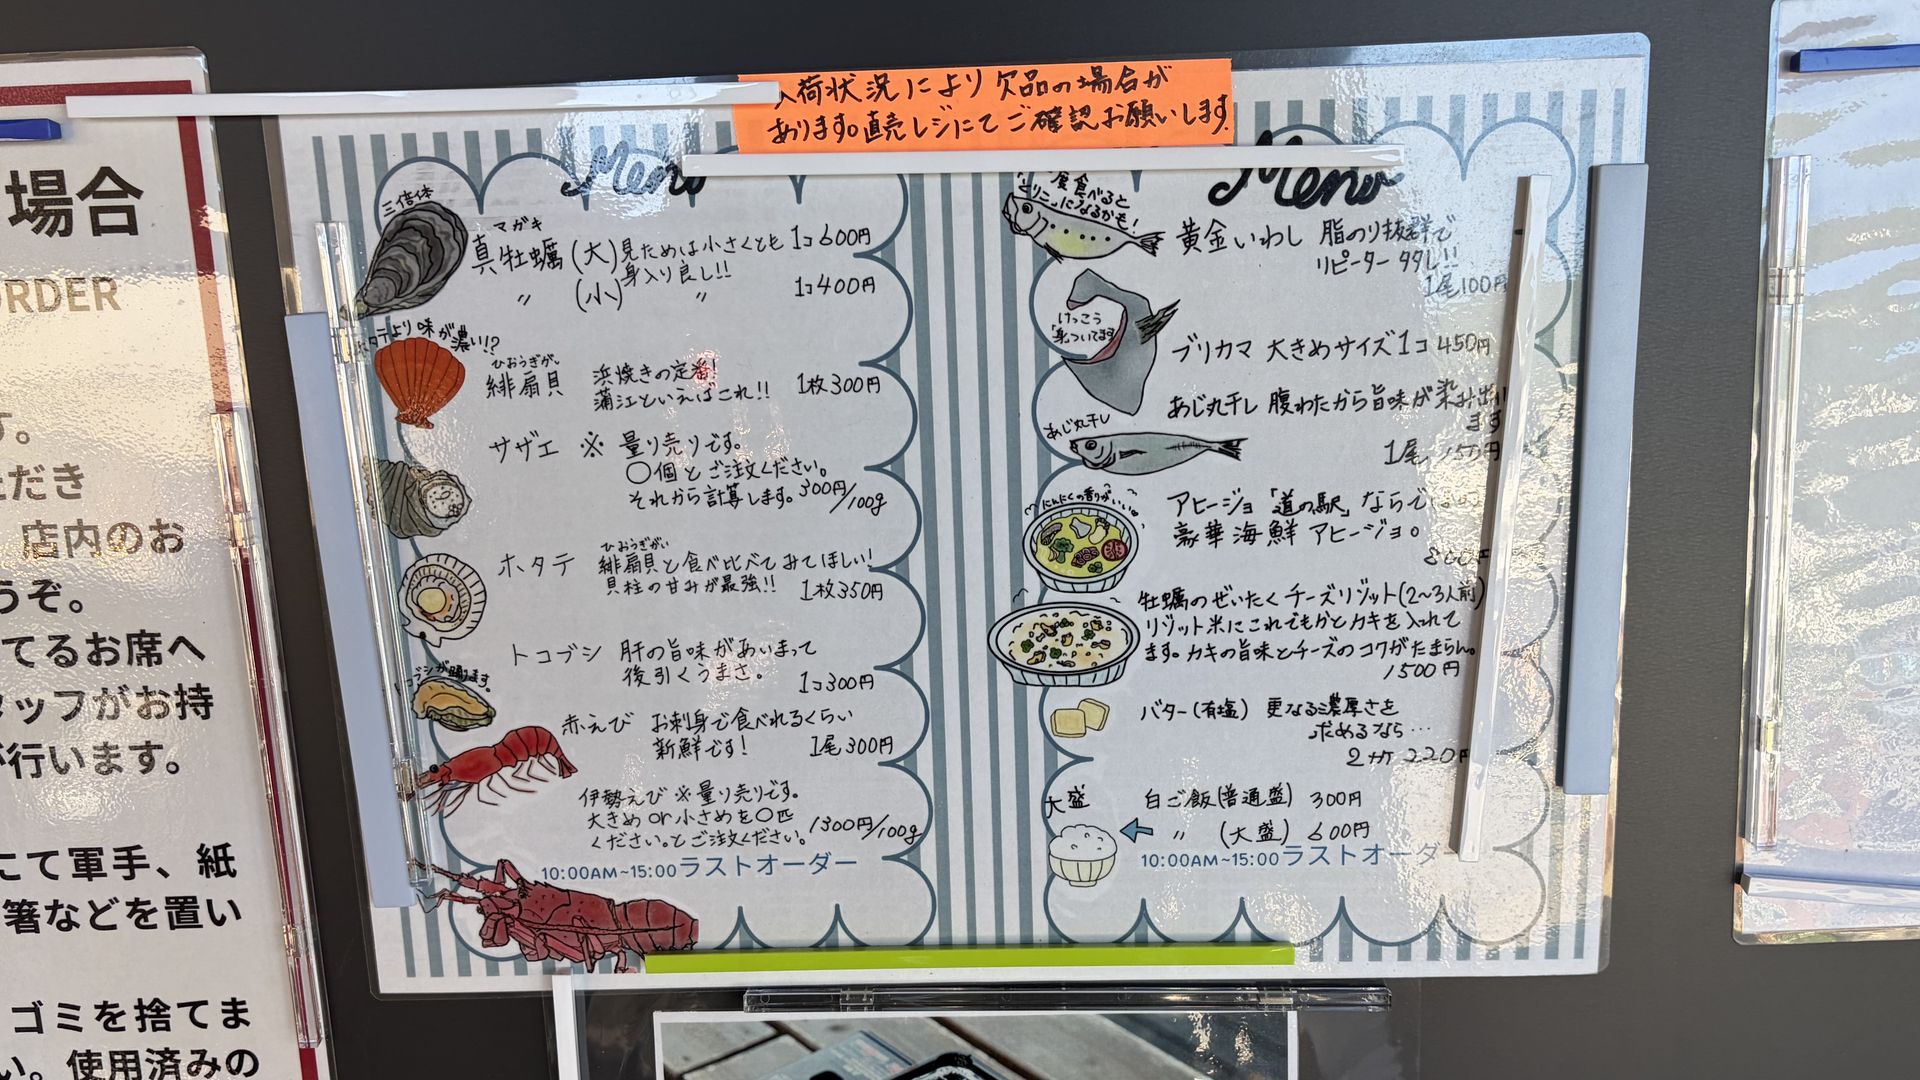 場合
ORDER
す。
ただき
店内のお
うぞ。
てるお席へ
タッフがお持
が行います。
にて軍手、紙
箸などを置い
ゴミを捨てま
い。使用済みの
入荷状況により欠品の場合が
あります。直売レジにてご確認お願いします。
Menu
三倍体
マガキ
真牡蠣(大)見ためは小さくとも 1コ600円
身入り良し!!
〃 (小) 〃 1コ400円
ホタテより味が濃い!?
ひおうぎがい
緋扇貝 浜焼きの定番!
蒲江といえばこれ!! 1枚300円
サザエ ※ 量り売りです。
〇個とご注文ください。
それから計算します。300円/100g
ひおうぎがい
ホタテ 緋扇貝と食べ比べてみてほしい!
貝柱の甘みが最強!! 1枚350円
トコブシ 肝の旨味があいまって
後引くうまさ。
1コ300円
トコブシが踊ります。
赤えび お刺身で食べれるくらい
新鮮です! 1尾300円
伊勢えび ※量り売りです。
大きめor小さめを〇匹
ください。とご注文ください。1300円/100g
10:00AM~15:00ラストオーダー
Menu
度食べると
とりこになるかも!
黄金いわし 脂のり抜群で
リピーター タタし!!
1尾100円
けっこう
身ついてます
ブリカマ 大きめサイズ1コ450円
あじ丸干し
あじ丸干し 腹わたから旨味が染み出し
ます
1尾 150円
にんにくの香りがいい
アヒージョ「道の駅」ならではの
豪華海鮮アヒージョ。
800円
牡蠣のぜいたくチーズリゾット(2~3人前)
リゾット米にこれでもかとカキを入れて
ます。カキの旨味とチーズのコクがたまらん。
1500円
バター(有塩) 更なる濃厚さを
求めるなら…
2ケ 220円
大盛
白ご飯(普通盛) 300円
〃 (大盛) 600円
10:00AM~15:00ラストオーダー